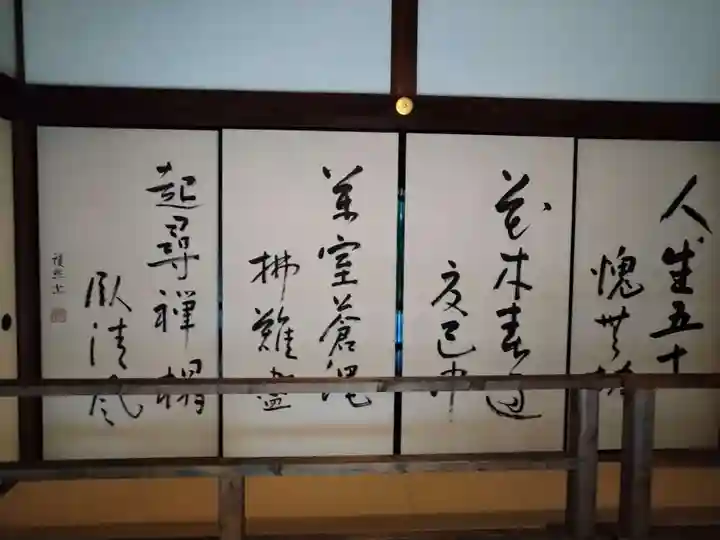 人生五十
愧無功
花木春過
夏已中
満室蒼蠅
掃難盡
起尋禅榻
臥清風